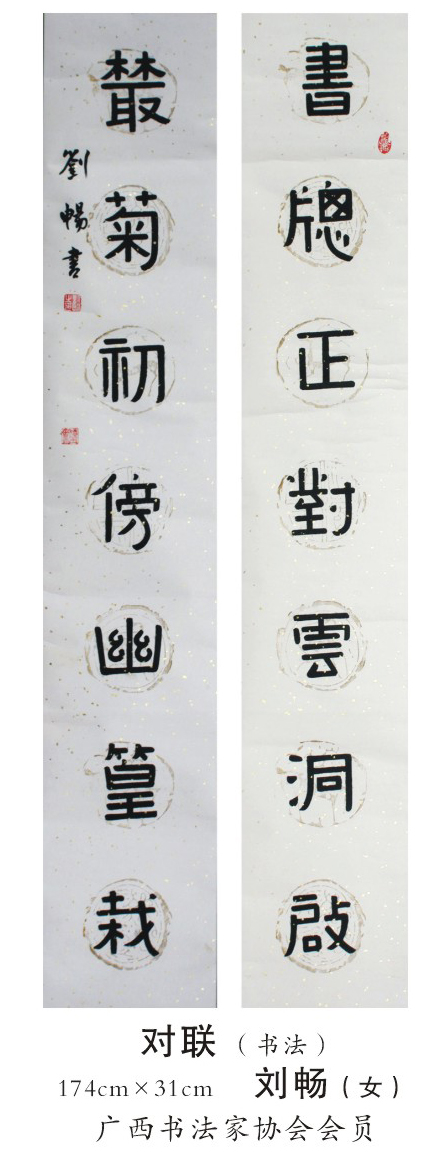 書牕正對雲洞啟
叢菊初傍幽篁栽
劉暢書
对联（书法）
174cm×31cm 刘畅（女）
广西书法家协会会员